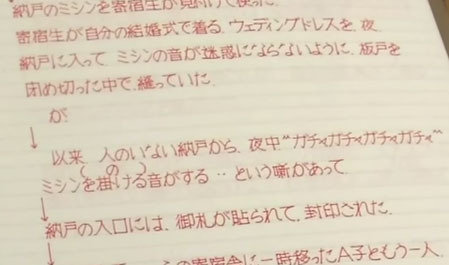 納戸のミシンを寄宿生が見付けて使った
寄宿生が自分の結婚式で着る、ウェディングドレスを、夜
納戸に入って、ミシンの音が迷惑にならないように、板戸を
閉め切った中で、縫っていた
が
↓
以来、人のいない納戸から、夜中“ガチャガチャガチャガチャ”
ミシンを掛ける音がする‥という噺があって
↓
納戸の入口には、御札が貼られて、封印された。
↓
の寄宿舎に一時移ったA子ともう一人